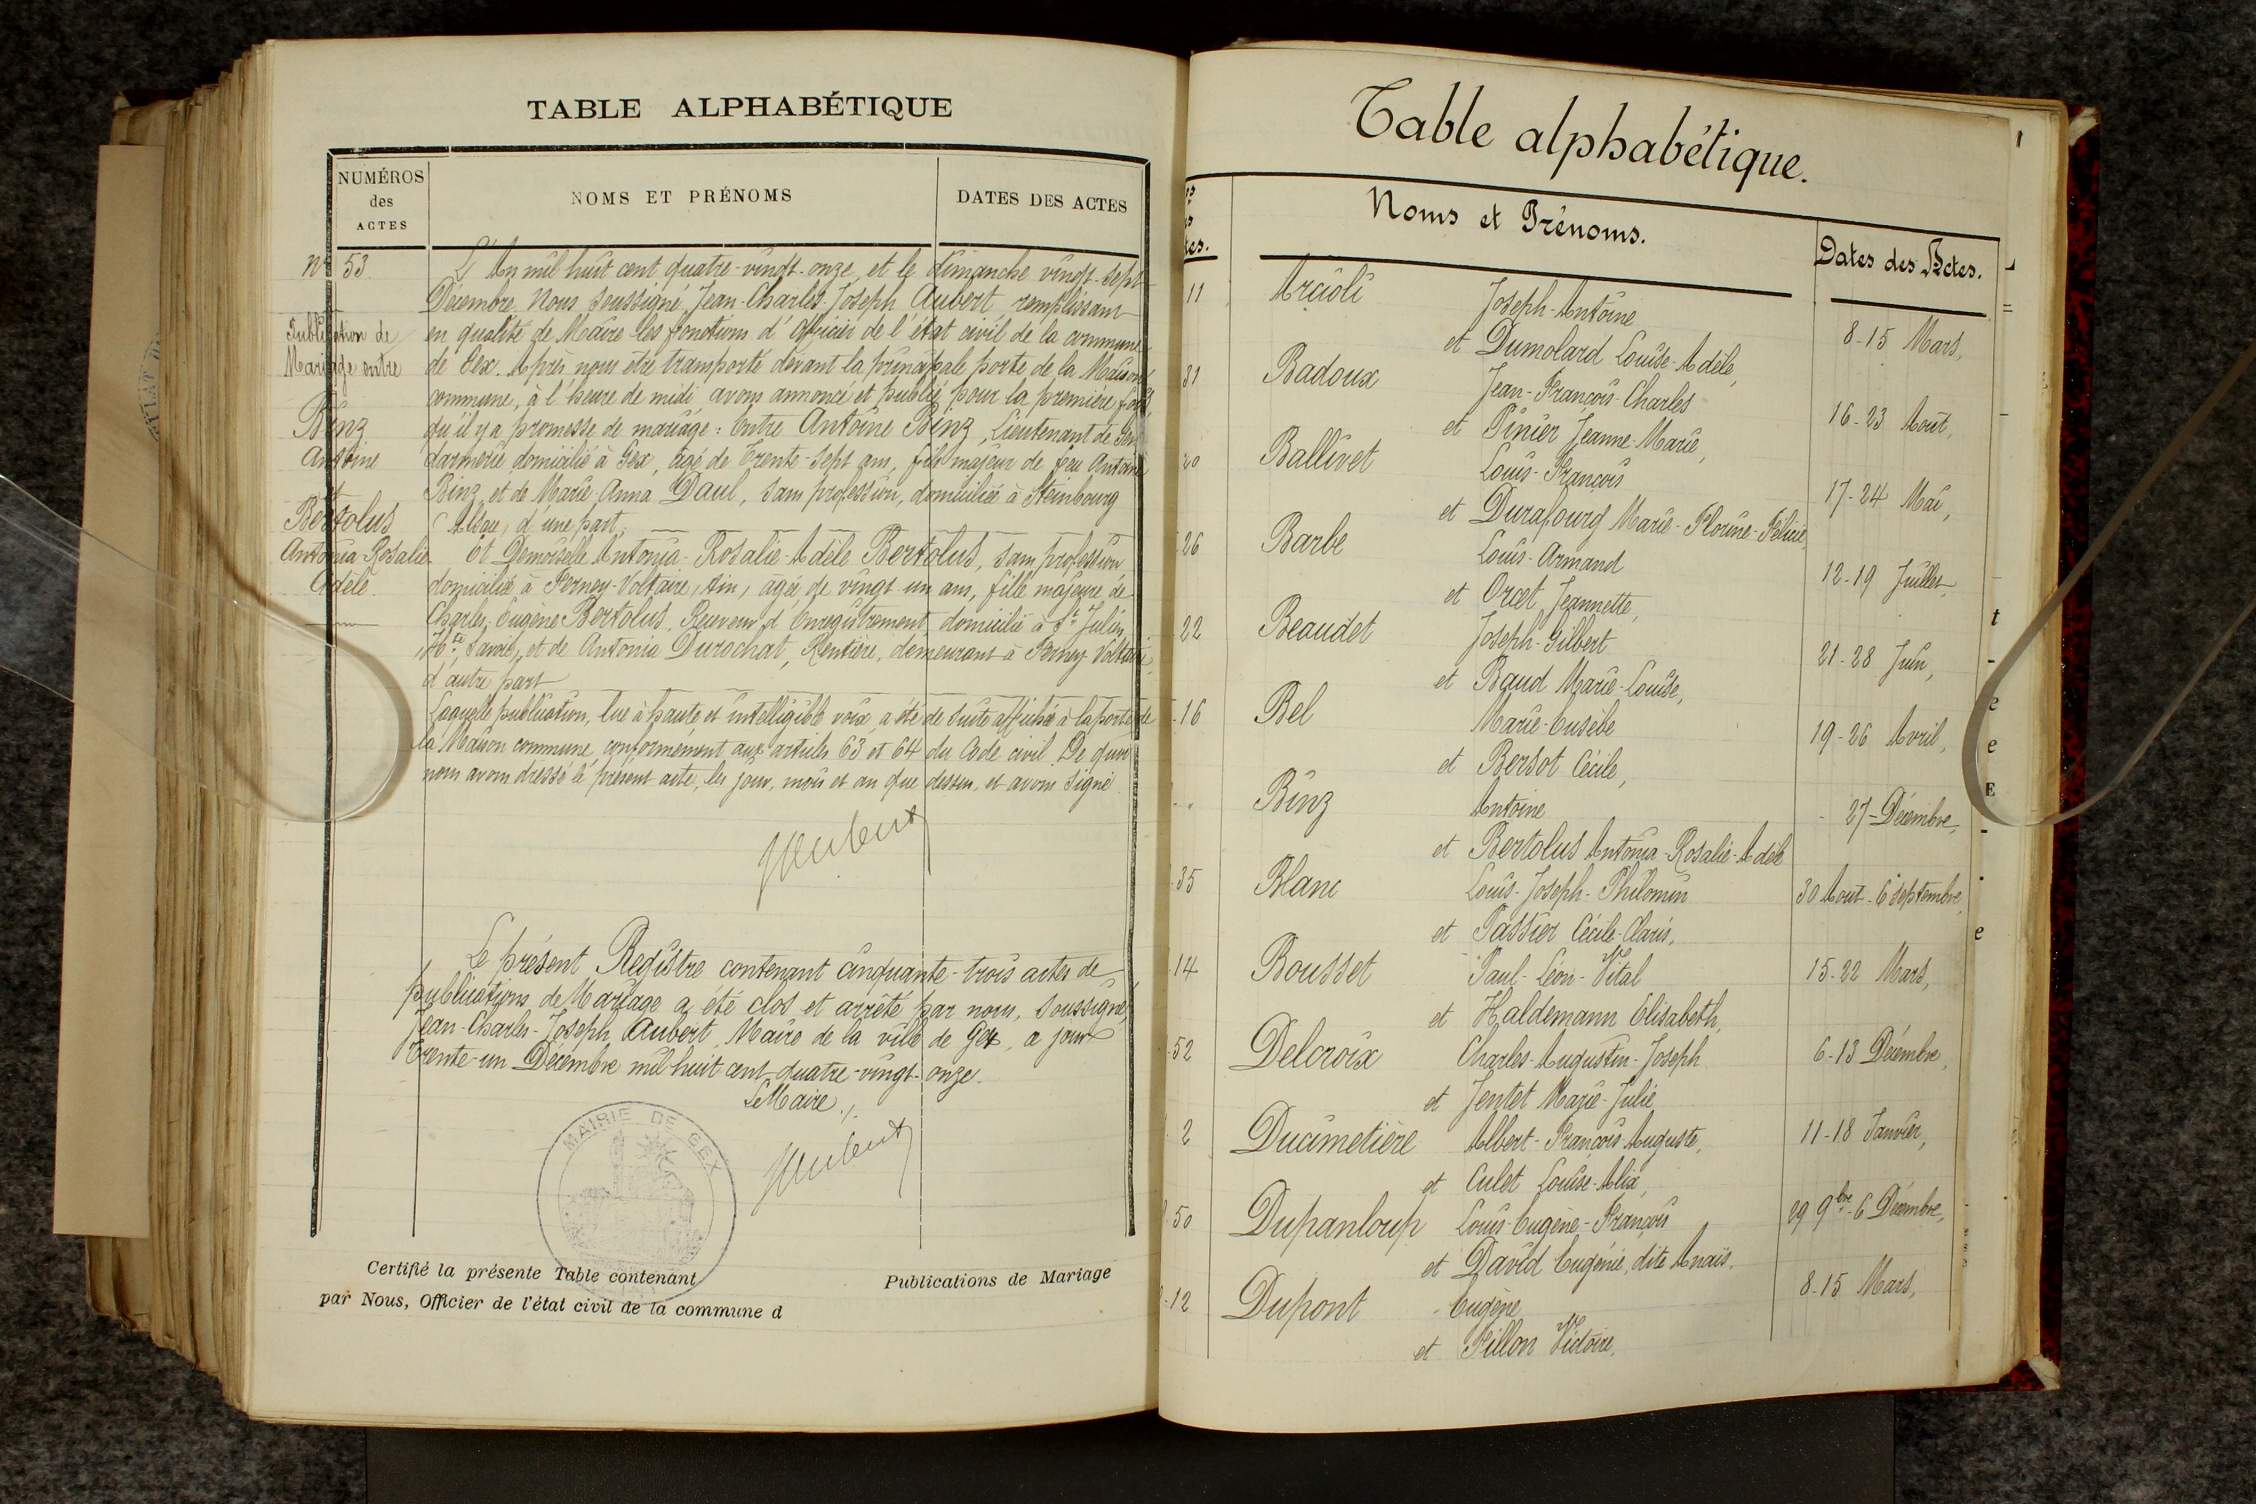 TABLE ALPHABÉTIQUE
NUMÉROS
des
ACTES
NOMS ET PRÉNOMS
DATES DES ACTES
N° 53
Publication de
Mariage entre
Binz
Antoine
et
Bertolus
Antonia-Rosalie
Adèle
L'An mil huit cent quatre-vingt-onze, et le dimanche vingt-sept
Décembre, Nous soussigné, Jean-Charles-Joseph Aubert, remplissant
en qualité de Maire les fonctions d'officier de l'état civil de la commune
de Gex. Après nous être transporté devant la principale porte de la Maison
commune, à l'heure de midi avons annoncé et publié pour la première fois,
qu'il y a promesse de mariage : Entre Antoine Binz, Lieutenant de Gen
darmerie domicilié à Gex, âgé de Trente-sept ans, fils majeur de feu Antoine
Binz, et de Marie-Anna Daul, sans profession, domiciliée à Steinbourg
(Alsace) d'une part,
Et Demoiselle Antonia-Rosalie-Adèle Bertolus, sans profession
domiciliée à Ferney-Voltaire, Ain, âgée de vingt-un ans, fille majeure de
Charles, Eugène Bertolus, Receveur d'Enregistrement, domicilié à St Julien
(Hte Savoie), et de Antonia Durochat, Rentière, demeurant à Ferney Voltaire,
d'autre part
Laquelle publication, lue à haute et intelligible voix, a été de suite affichée à la porte de
la Maison commune, conformément aux articles 63 et 64 du Code civil. De quoi
nous avons dressé le présent acte, les jour, mois et an que dessus, et avons signé
JAubert
Le présent Registre contenant cinquante-trois actes de
publications de Mariage a été clos et arrêté par nous, soussigné,
Jean-Charles-Joseph Aubert, Maire de la ville de Gex, ce jour
Trente-un Décembre mil-huit cent quatre-vingt-onze.
Le Maire,
MAIRIE DE GEX
JAubert
Certifié la présente Table contenant Publications de Mariage
par Nous, Officier de l'état civil de la commune d
Table alphabétique.
tes.
Noms et Prénoms.
Dates des Actes.
11 Arcioli Joseph-Antoine
et Dumolard Louise-Adèle, 8-15 Mars,
31 Badoux Jean-François-Charles
et Pinier Jeanne-Marie, 16-23 Aout,
20 Ballivet Louis-François
et Durafourg Marie-Florine-Félicie, 17-24 Mai,
26 Barbe Louis-Armand
et Orcet Jeannette, 12-19 Juillet,
22 Beaudet Joseph-Gilbert
et Baud Marie-Louise, 21-28 Juin,
16 Bel Marie-Eusèbe
et Bersot Cécile, 19-26 Avril,
Binz Antoine
et Bertolus Antonia-Rosalie-Adèle 27-Décembre,
35 Blanc Louis-Joseph-Philomin
et Passier Cécile-Claris, 30 Aout-6 septembre,
14 Bousset Paul-Léon-Vital
et Haldemann Elisabeth, 15-22 Mars,
52 Delcroix Charles-Augustin-Joseph
et Jentet Marie-Julie 6-13 Décembre,
2 Ducimetière Albert-François-Auguste,
et Culet Louise-Alix, 11-18 Janvier,
50 Dupanloup Louis-Eugène-François
et David Eugénie, dite Anaïs. 29 9bre-6 Décembre,
12 Dupont Eugène
et Fillon Victoire, 8-15 Mars,